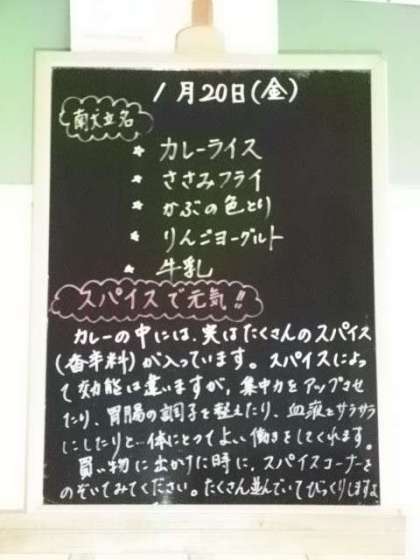 1月20日(金)
献立名
* カレーライス
* ささみフライ
* かぶの色どり
* りんごヨーグルト
* 牛乳
スパイスで元気!!
カレーの中には、実はたくさんのスパイス
(香辛料)が入っています。スパイスによっ
て効能は違いますが、集中力をアップさせ
たり、胃腸の調子を整えたり、血液をサラサラ
にしたりと…体にとってよい働きをしてくれます。
買い物に出かけた時に、スパイスコーナーを
のぞいてみてください。たくさん並んでいてびっくりしますよ